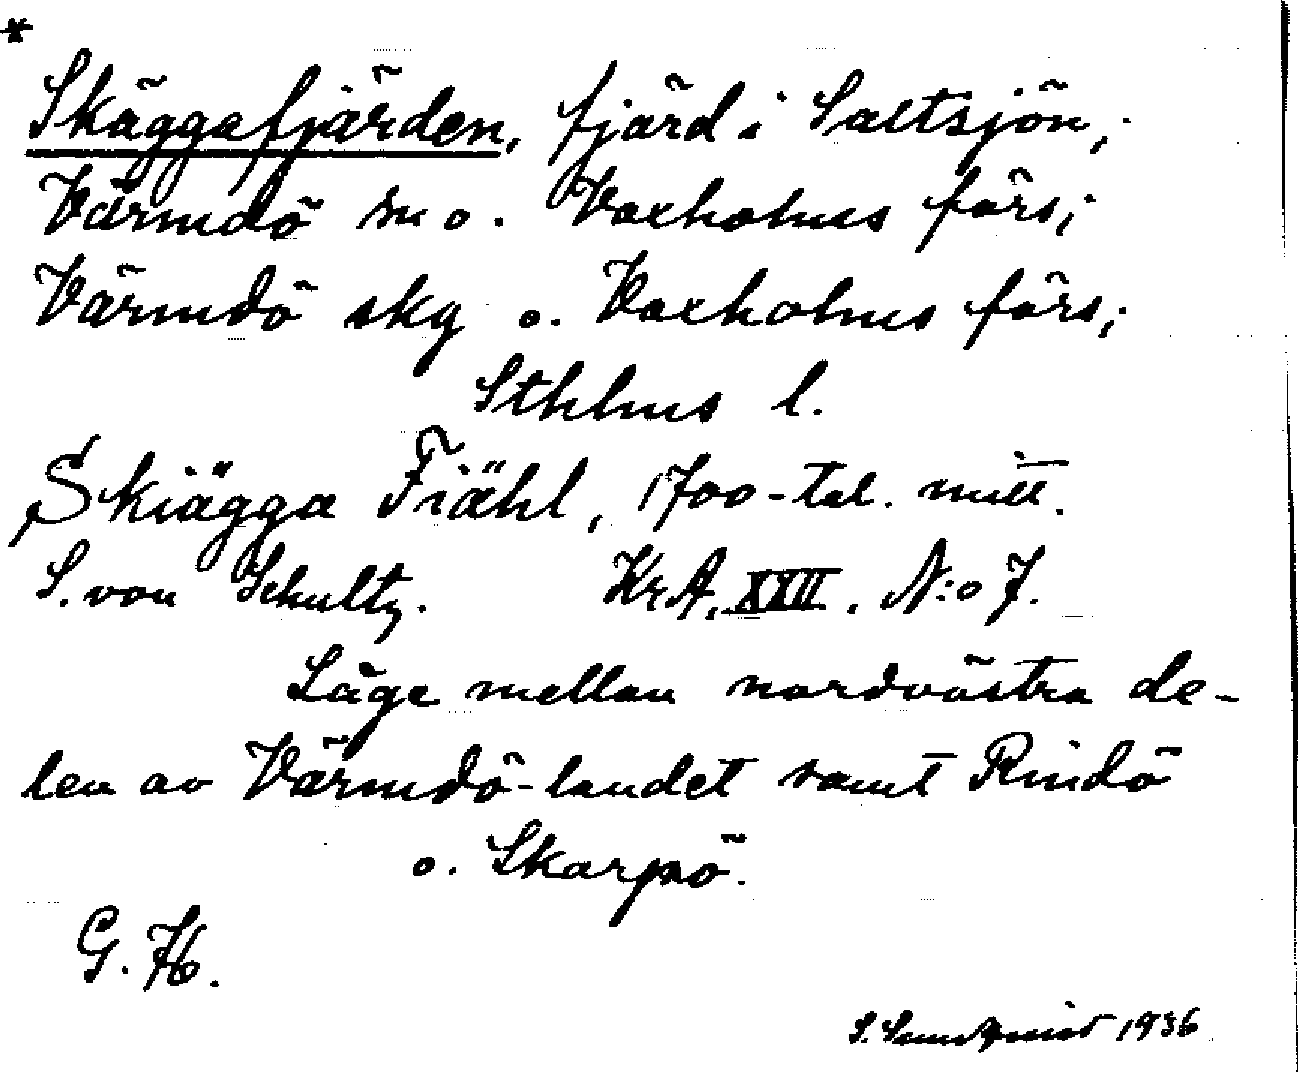 *
Skäggafjärden, fjärd i Saltsjön,
Värmdö sn o. Vaxholms förs;
Värmdö skg o. Vaxholms förs,
Sthlms l.
Skiägga Fiähl, 1700-tal. mitt.
S. von Schultz. Kr.A. XXII. N:o 7.
Läge mellan nordvästra de-
len av Värmdö-landet samt Rindö
o. Skarpö.
G. H.
S. Sundqvist 1936